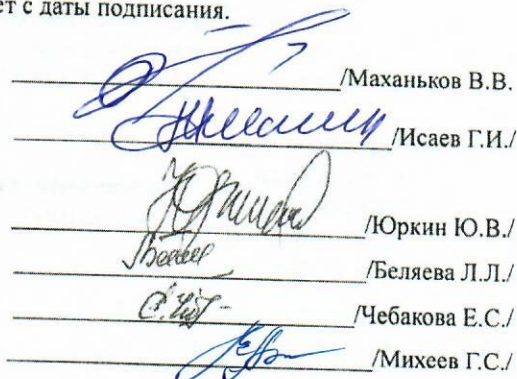 ет с даты подписания.
/Маханьков В.В.
/Исаев Г.И./
/Юркин Ю.В./
/Беляева Л.Л./
/Чебакова Е.С./
/Михеев Г.С./